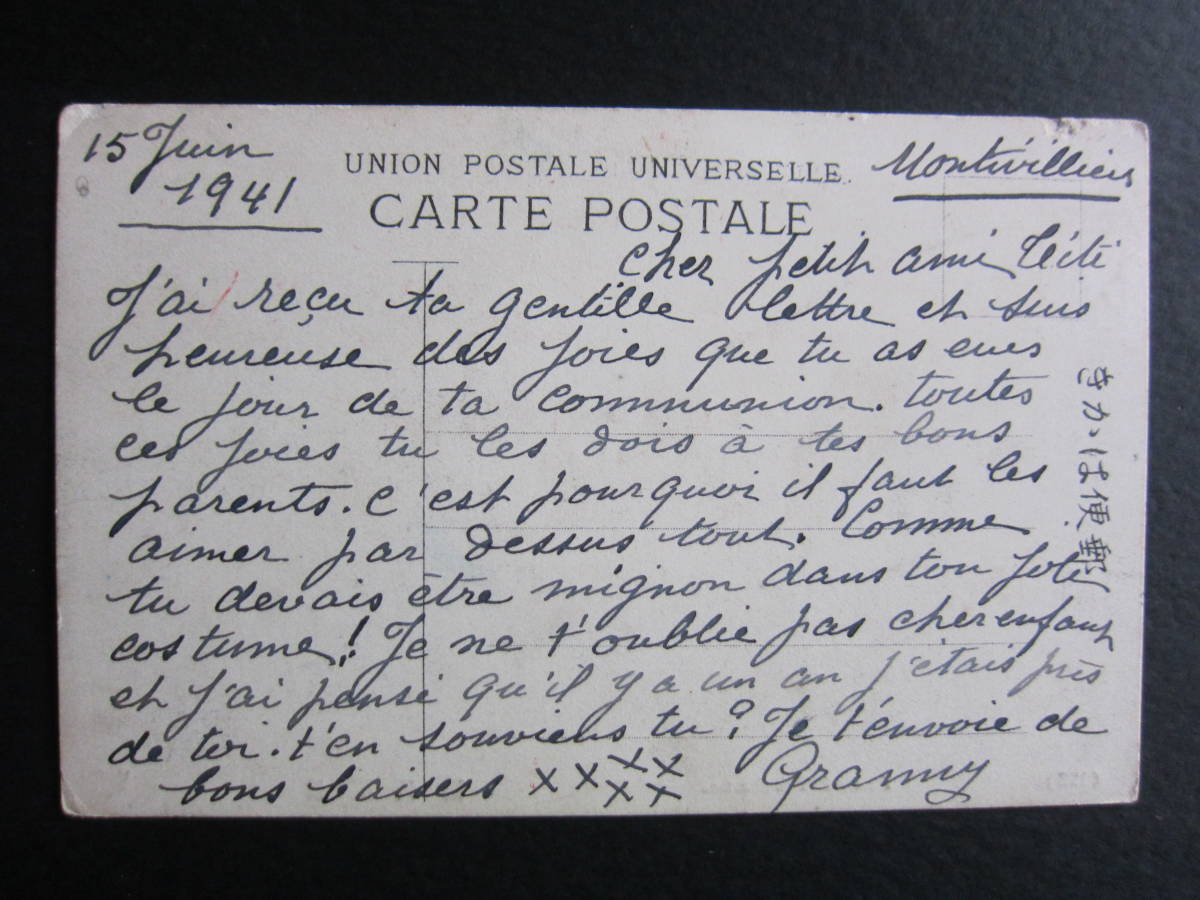 15 Juin
1941
UNION POSTALE UNIVERSELLE.
CARTE POSTALE
Montivilliers
Cher petit ami
J'ai reçu ta gentille lettre et suis
heureuse des joies que tu as eues
le jour de ta communion. toutes
ces joies tu les dois à tes bons
parents. c'est pourquoi il faut les
aimer par dessus tout. Comme
tu devais être mignon dans ton joli
costume! Je ne t'oublie pas cher enfant
et j'ai pensé qu'il y a un an j'étais près
de toi. t'en souviens tu? Je t'envoie de
bons baisers x x x x x x Granny
きかゝは便郵